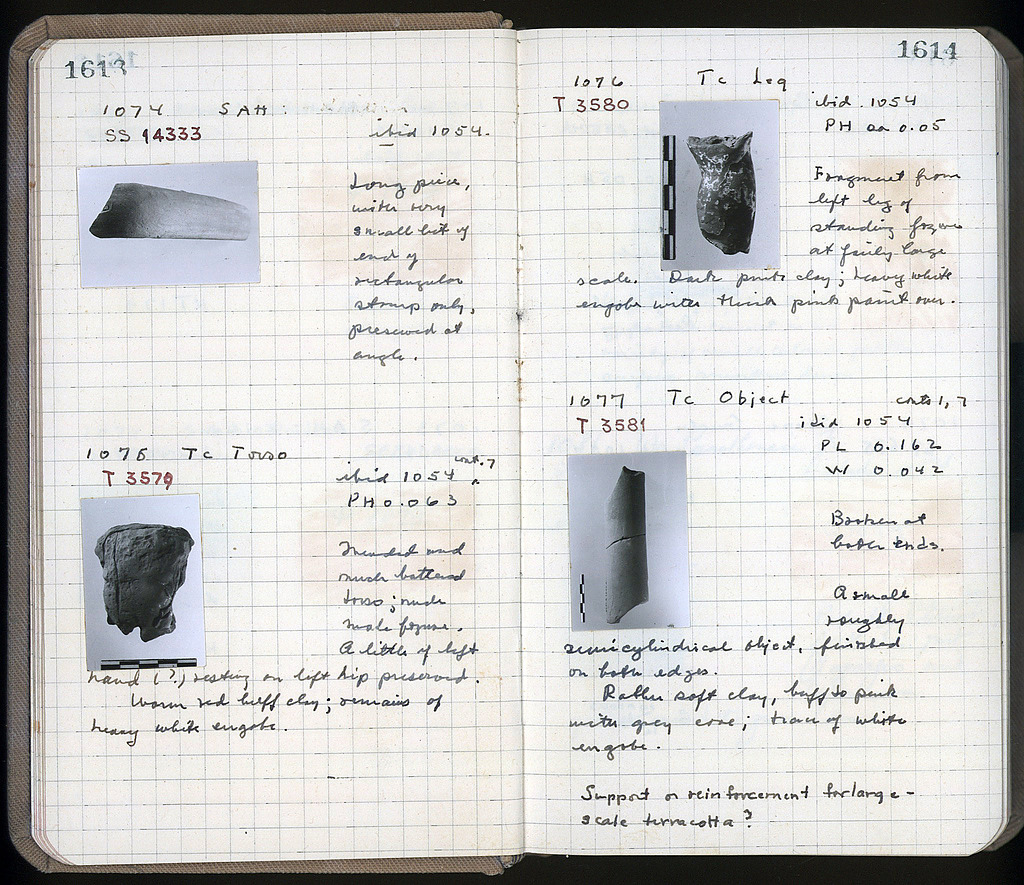 1613
1074 SAH.
SS 14333
ibid 1054.
Long piece,
with very
small bit of
end of
rectangular
stamp only,
preserved at
angle.
1075 Tc Torso
T 3579
cont. 7
ibid 1054
PH 0.063
Mended and
much battered
torso; nude
male figure.
A little of left
hand (?) resting on left hip preserved.
Warm red buff clay; remains of
heavy white engobe.
1614
1076 Tc Leg
T 3580
ibid. 1054
PH ca 0.05
Fragment from
left leg of
standing figure
at fairly large
scale. Dark pink clay; heavy white
engobe with thick pink paint over.
1077 Tc Object
conts 1, 7
T 3581
ibid 1054
PL 0.162
W 0.042
Broken at
both ends.
A small
roughly
semicylindrical object, finished
on both edges.
Rather soft clay, buff to pink
with grey core; traces of white
engobe.
Support or reinforcement for large-
scale terracotta?